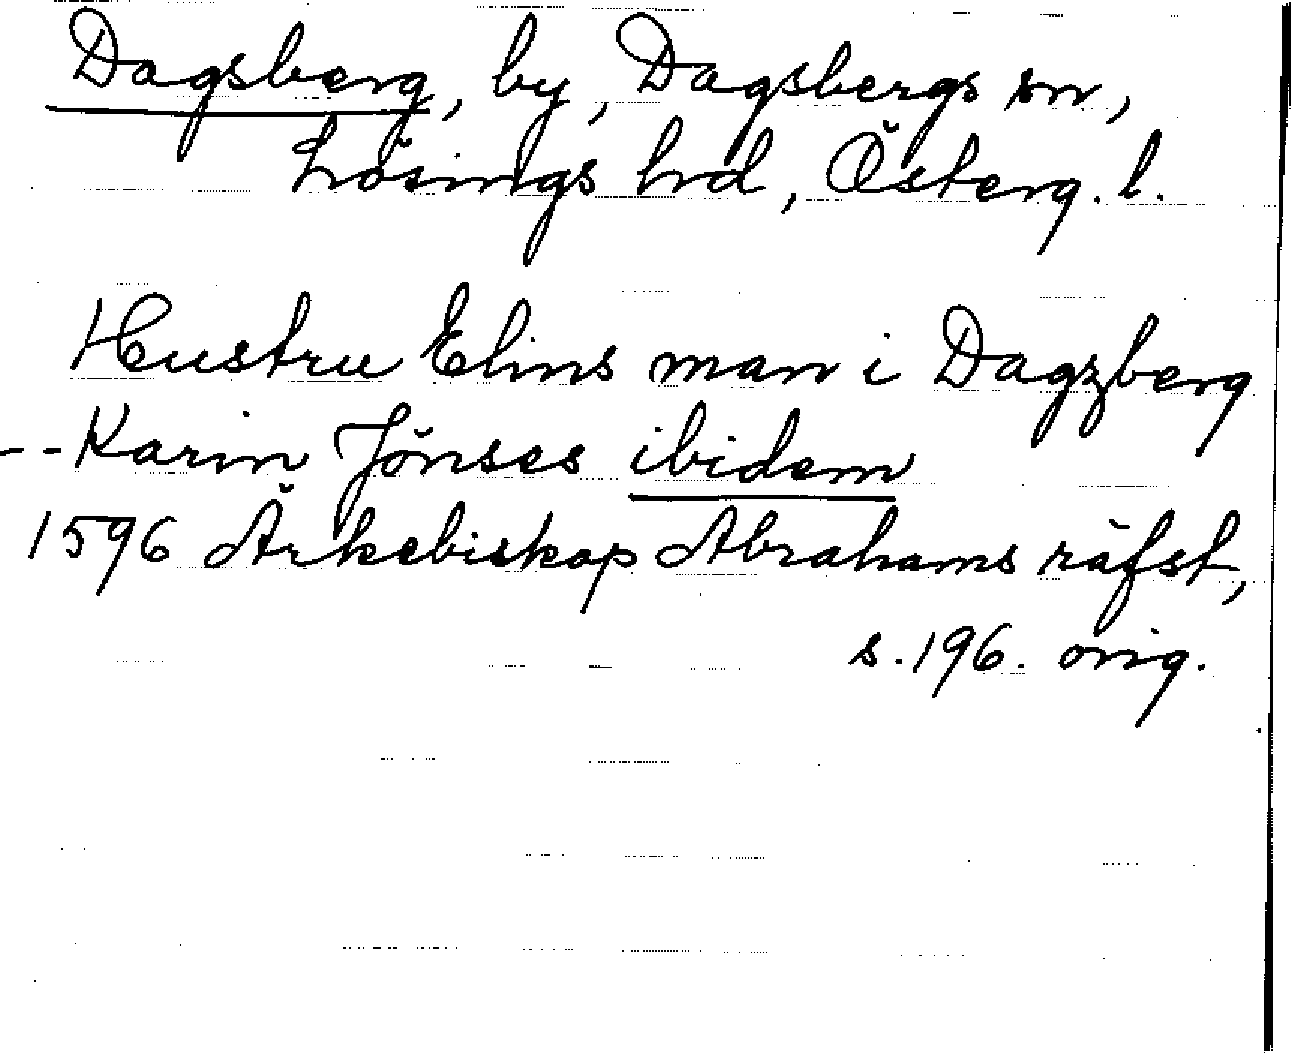 Dagsberg, by, Dagsbergs sn,
Lösings hd, Österg. l.
Hustru Elins man i Dagzberg
-- Karin Jönses ibidem
1596 Ärkebiskop Abrahams räfst,
s. 196. orig.